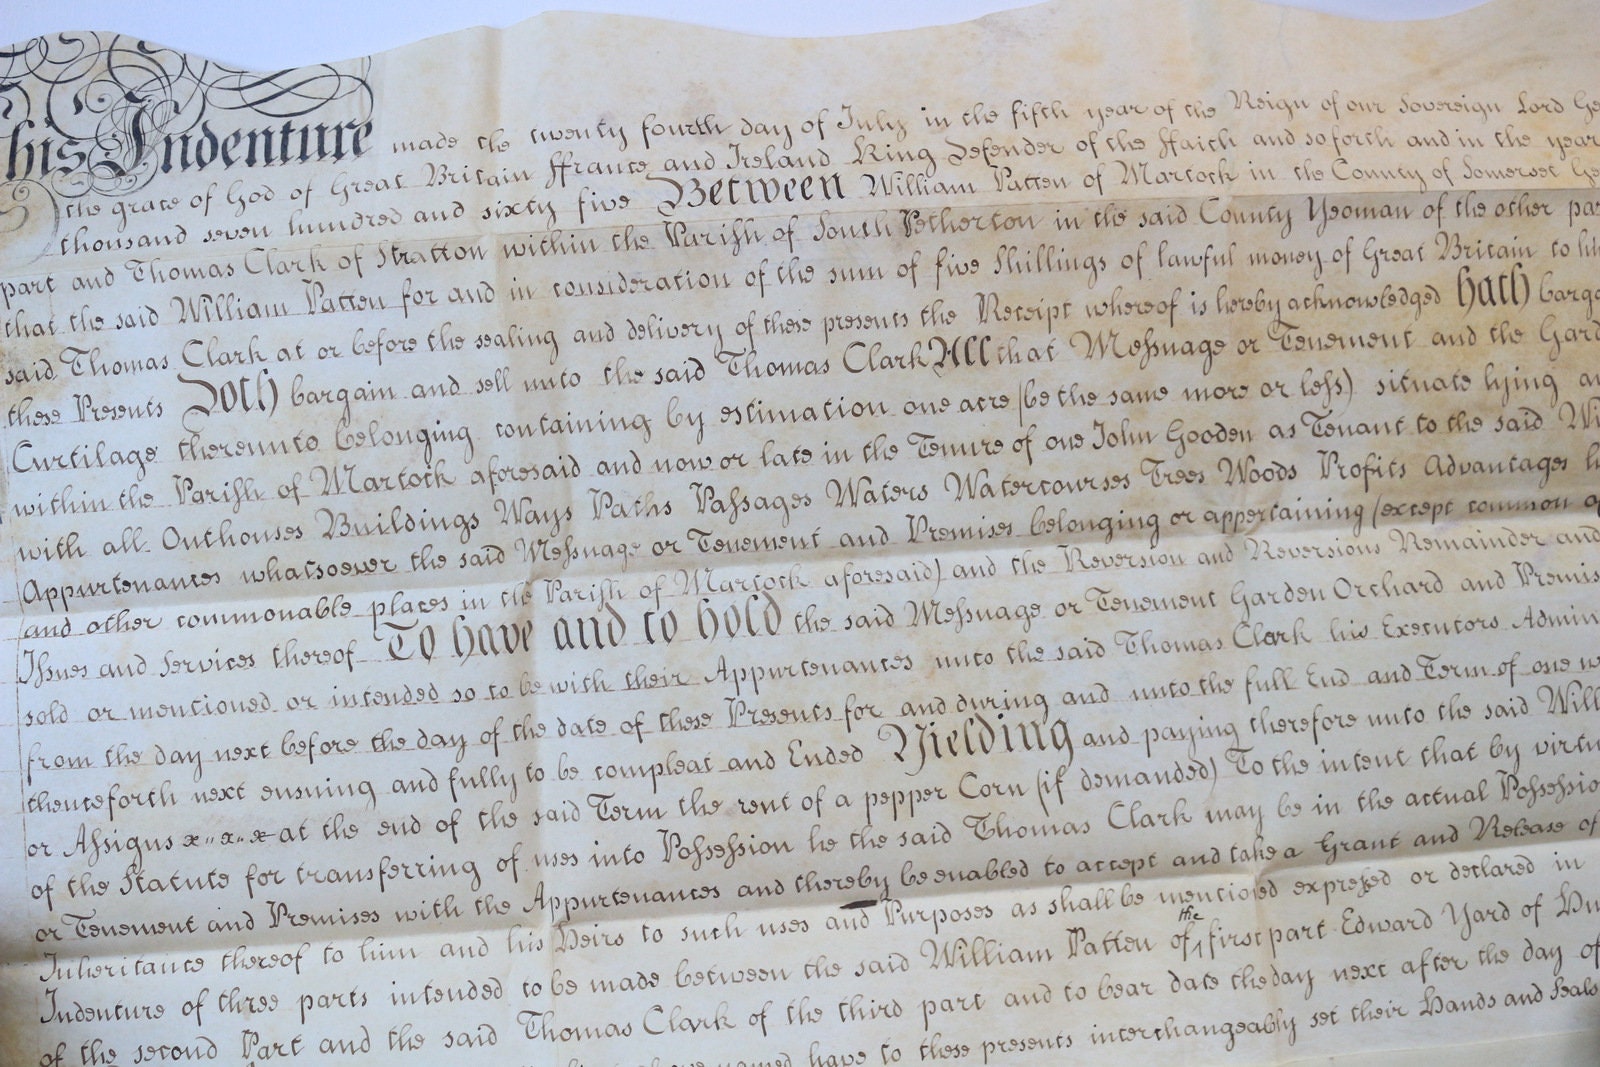 his Indenture made the twenty fourth day of July in the fifth year of the Reign of our Sovereign Lord Ge
the grace of God of Great Britain ffrance and Ireland King Defender of the ffaith and so forth and in the year
thousand seven hundred and sixty five Between William Patten of Martock in the County of Somerset Ge
part and Thomas Clark of Stratton within the Parish of South Petherton in the said County Yeoman of the other par
that the said William Patten for and in consideration of the sum of five Shillings of lawful money of Great Britain to hi
said Thomas Clark at or before the sealing and delivery of these presents the Receipt whereof is hereby acknowledged Hath barga
these Presents Doth bargain and sell unto the said Thomas Clark All that Messuage or Tenement and the Gard
Curtilage thereunto belonging containing by estimation one acre (be the same more or less) situate lying a
within the Parish of Martock aforesaid and now or late in the Tenure of one John Gooden as Tenant to the said Wi
with all Outhouses Buildings Ways Paths Passages Waters Watercourses Trees Woods Profits Advantages h
Appurtenances whatsoever the said Messuage or Tenement and Premises belonging or appertaining (except common o
and other commonable places in the Parish of Martock aforesaid) and the Reversion and Reversions Remainder and
Issues and Services thereof To have and to hold the said Messuage or Tenement Garden Orchard and Premis
sold or mentioned or intended so to be with their Appurtenances unto the said Thomas Clark his Executors Admin
from the day next before the day of the date of these Presents for and during and unto the full End and Term of one w
thenceforth next ensuing and fully to be compleat and Ended Yielding and paying therefore unto the said Will
or Assigns x"x"x at the end of the said Term the rent of a pepper Corn (if demanded) To the intent that by virtu
of the Statute for transferring of uses into Possession he the said Thomas Clark may be in the actual Possessio
or Tenement and Premises with the Appurtenances and thereby be enabled to accept and take a Grant and Release of
Inheritance thereof to him and his Heirs to such uses and Purposes as shall be mentioned expressed or declared in
Indenture of three parts intended to be made between the said William Patten of the first part Edward Yard of
of the second Part and the said Thomas Clark of the third part and to bear date the day next after the day of
named have to these presents interchangeably set their Hands and Seals